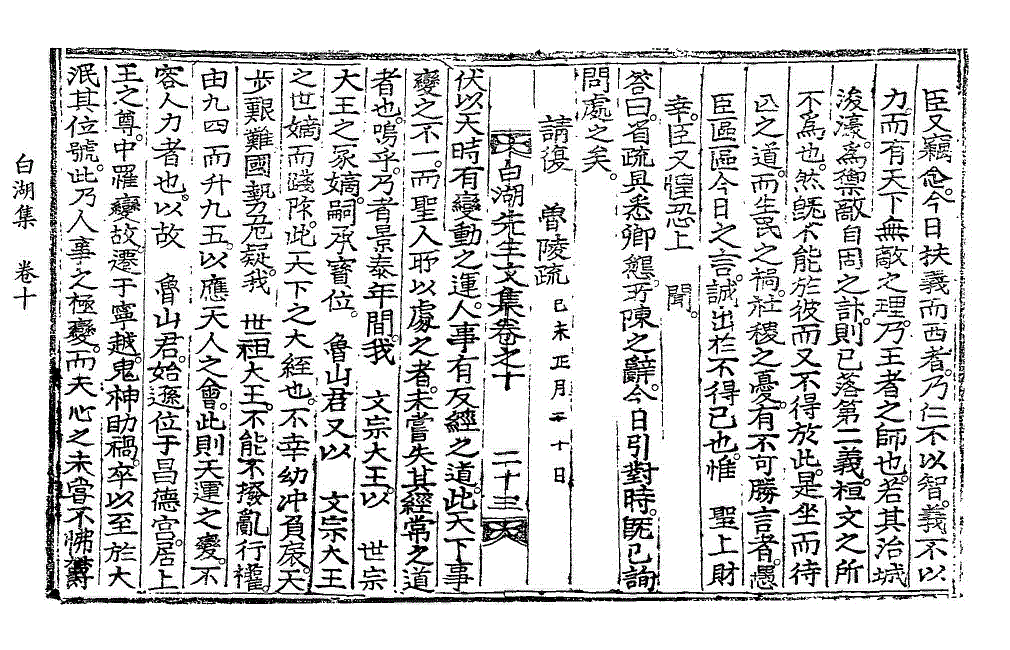 臣又竊念。今日扶義而西者。乃仁不以智。義不以
力。而有天下無敵之理。乃王者之師也。若其治城
浚濠。爲禦敵自固之計。則已落第二義。桓文之所
不爲也。然旣不能於彼而又不得於此。是坐而待
亡之道。而生民之禍。社稷之憂。有不可勝言者。愚
臣區區今日之言。誠出於不得已也。惟 聖上財
幸。臣又惶恐上 聞。
答曰。省疏具悉卿懇。所陳之辭。今日引對時。旣已詢
問處之矣。
請復 魯陵疏 己未正月二十日
白湖先生文集卷之十 二十三
伏以天時有變動之運。人事有反經之道。此天下事
變之不一。而聖人所以處之者。未嘗失其經常之道
者也。嗚乎。乃者景泰年間。我 文宗大王以 世宗
大王之冢嫡。嗣承寶位。 魯山君又以 文宗大王
之世嫡而踐阼。此天下之大經也。不幸幼冲負扆。天
步艱難國勢危疑。我 世祖大王。不能不撥亂行權。
由九四而升九五。以應天人之會。此則天運之變。不
容人力者也。以故 魯山君。始遜位于昌德宮。居上
王之尊。中罹變故。遷于寧越。鬼神助禍。卒以至於大
泯其位號。此乃人事之極變。而天心之未嘗不怫鬱
白湖集 卷十